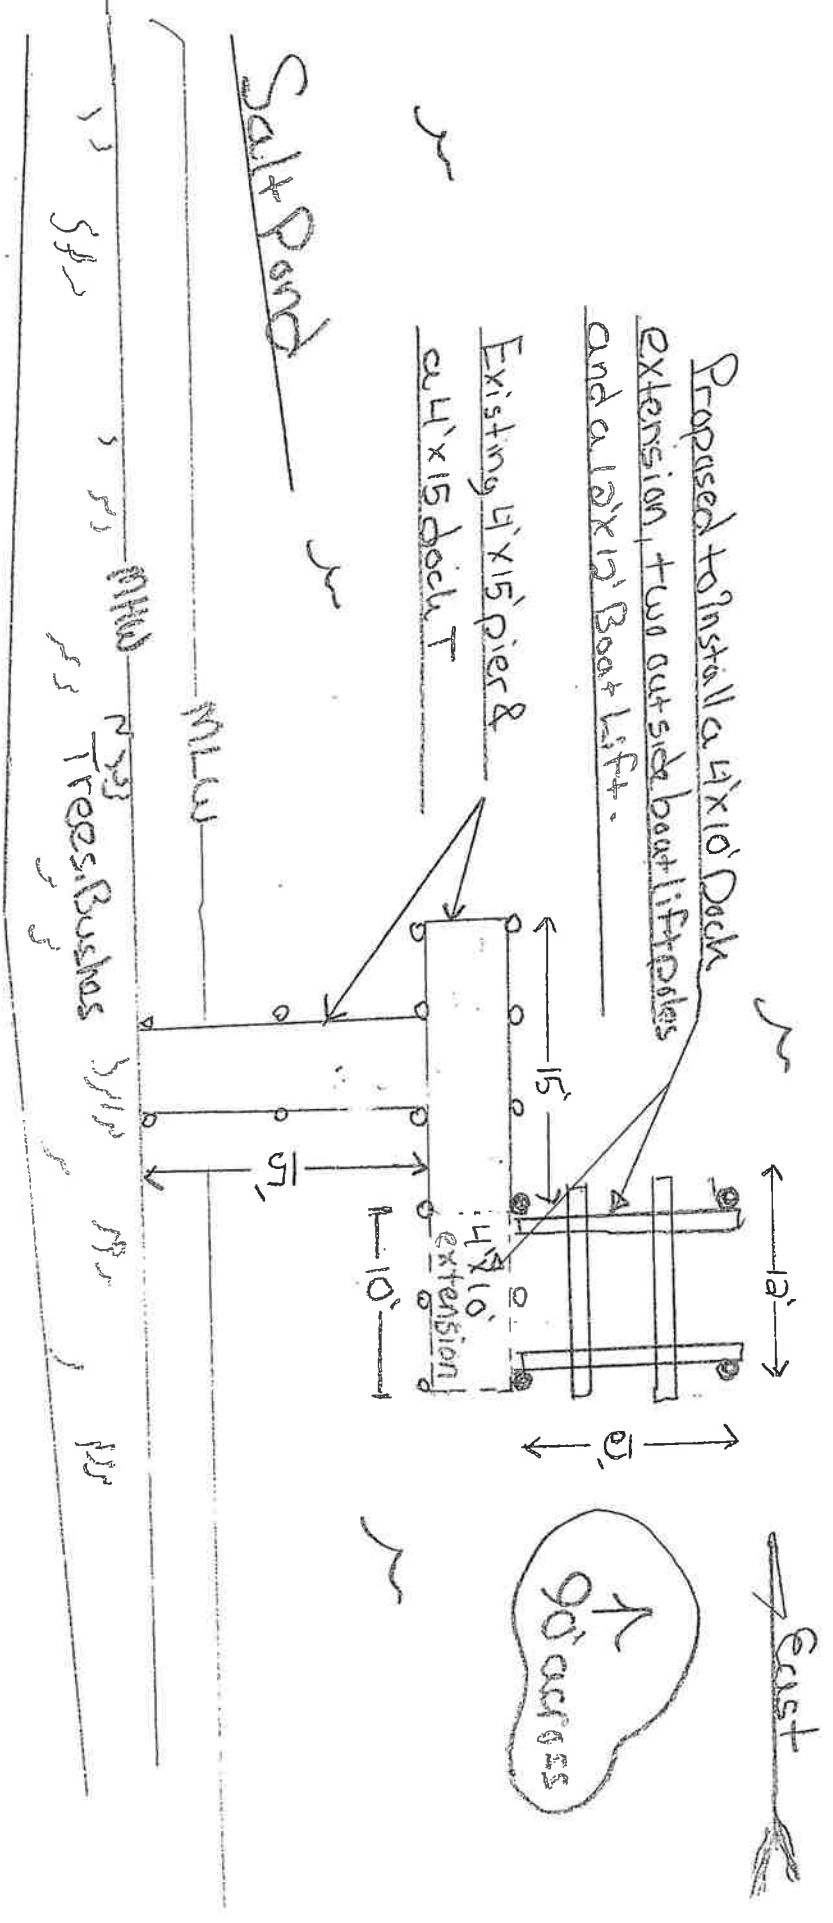 East
12'
Proposed to install a 4'x10' Dock
extension, two outside boat lift poles
and a 12'x12' Boat Lift.
12'
90' across
15'
Existing 4'x15' pier &
a 4'x15 dock T
4'x10'
extension
10'
Salt Pond
15'
MLW
MHW
Trees, Bushes